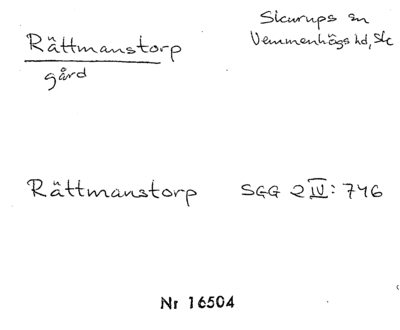 Rättmanstorp
gård
Skurups sn
Vemmenhögs hd, Sk
Rättmanstorp SGG 2 IV: 746
Nr 16504